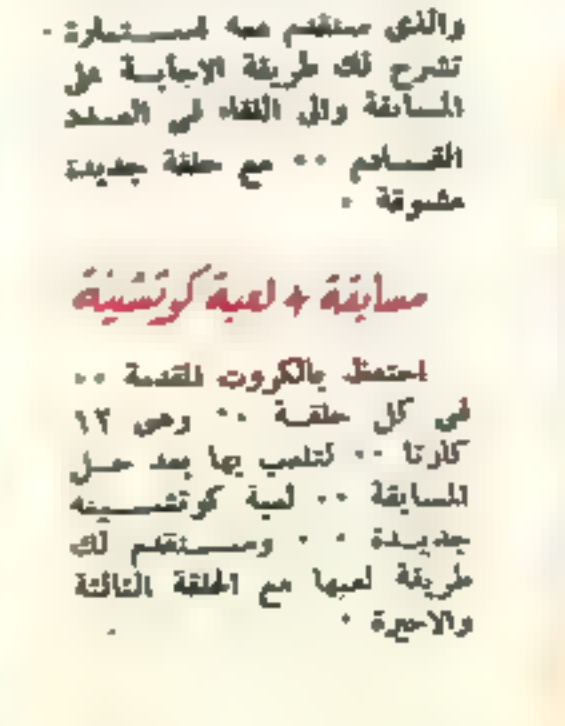 والذى سنقدم معه استمارة ·
تشرح لك طريقة الاجابة على
المسابقة والى اللقاء فى العدد
القادم ·· مع حلقة جديدة
مشوقة ·
مسابقة + لعبة كوتشينة
احتفظ بالكروت المقدمة ··
فى كل حلقة ·· وهى ١٢
كارتا ·· لتلعب بها بعد حل
المسابقة ·· لعبة كوتشينه
جديدة ·· وسنقدم لك
طريقة لعبها مع الحلقة الثالثة
والاخيرة ·